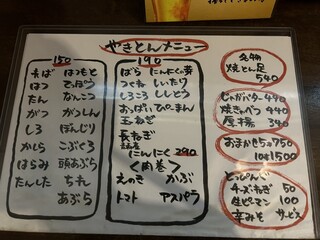 やきとんメニュー
150
はつもと
はつ てっぽう
たん なんこつ
がつ がつしん
しろ ぼんじり
かしら こぶくろ
はらみ 頭あぶら
たんした ちれ
あぶら
190
ばら にんにくの芽
つくね いたり
しろころ ししとう
おっぱい ぴーまん
玉ねぎ
長ねぎ
にんにく 290
<肉巻>
えのき かぶ
トマト アスパラ
名物
焼とん足
540
じゃがバター 440
焼きゃべつ 440
厚揚 340
おまかせ5つ750
10本1500
とっぴんぐ
チーズねぎ 50
生ピーマン 100
辛みそ サービス